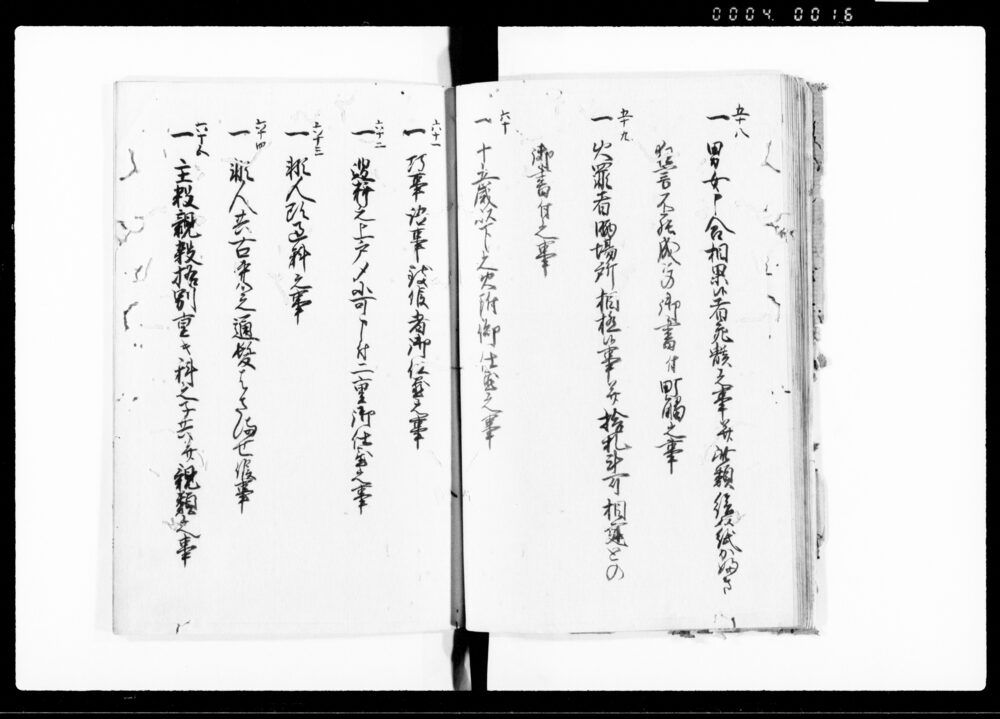 0004 0016
五十八
一 男女申合相果候者死骸之事并此類絵双紙かぶき
狂言不致成候御書付町触之事
五十九
一 火罪者晒場所相極候事并捨札斗可相建との
御書付之事
六十
一 十五歳以下之火附御仕置之事
六十一
一 巧事訴事致候者御仕置之事
六十二
一 過料之上戸〆不可申付二重御仕置之事
六十三
一 非人頭過料之事
六十四
一 非人共古来之通髪はさませ候事
六十五
一 主殺親殺格別重き科之子共并親類之事